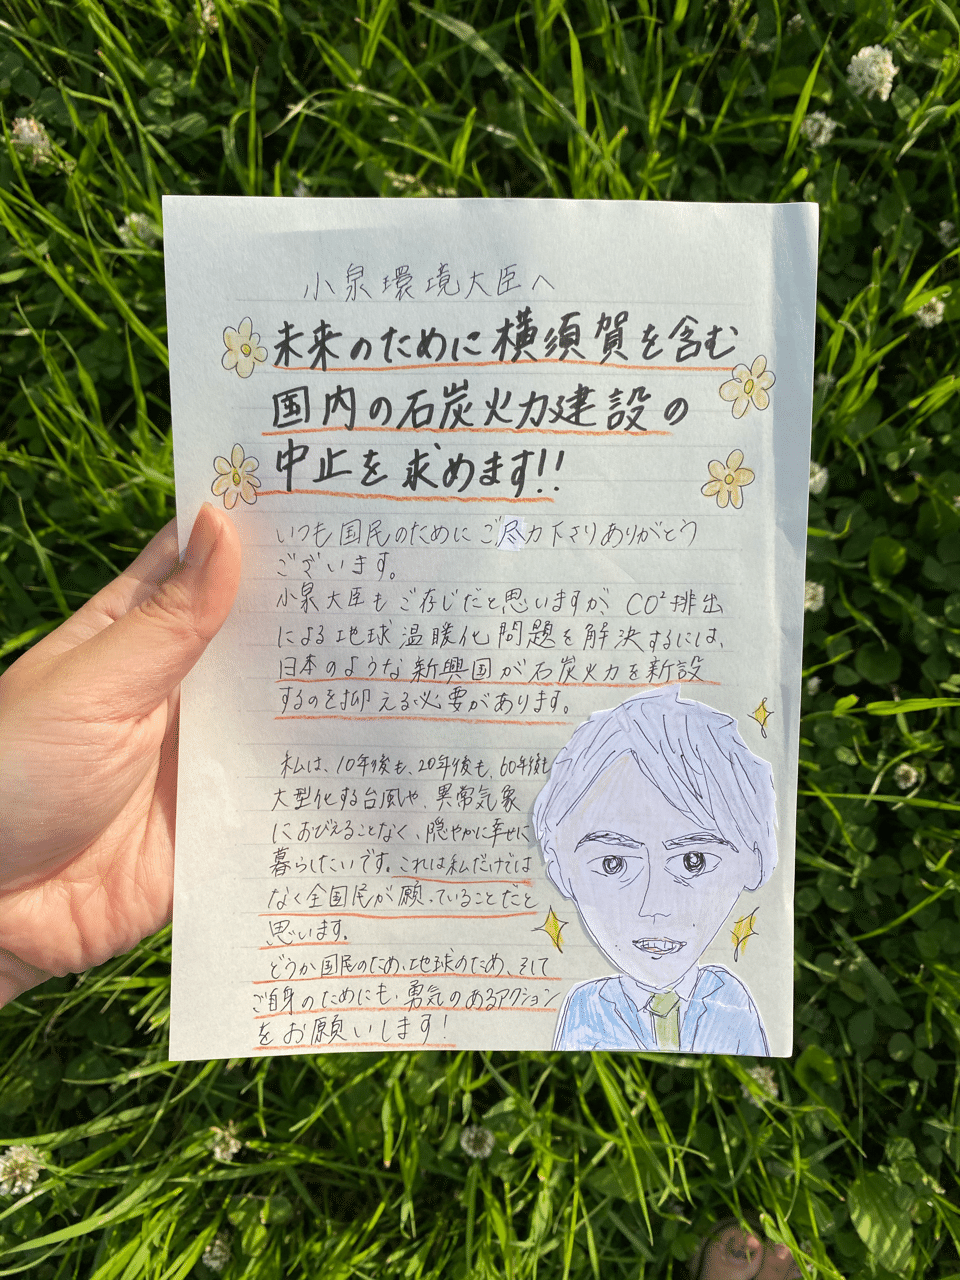 小泉環境大臣へ
未来のために横須賀を含む
国内の石炭火力建設の
中止を求めます!!
いつも国民のためにご尽力下さりありがとう
ございます。
小泉大臣もご存じだと思いますが、CO²排出
による地球温暖化問題を解決するには、
日本のような新興国が石炭火力を新設
するのを抑える必要があります。
私は、10年後も、20年後も、60年後も
大型化する台風や、異常気象
におびえることなく、穏やかに幸せに
暮らしたいです。これは私だけでは
なく全国民が願っていることだと
思います。
どうか国民のため、地球のため、そして
ご自身のためにも、勇気のあるアクション
をお願いします!